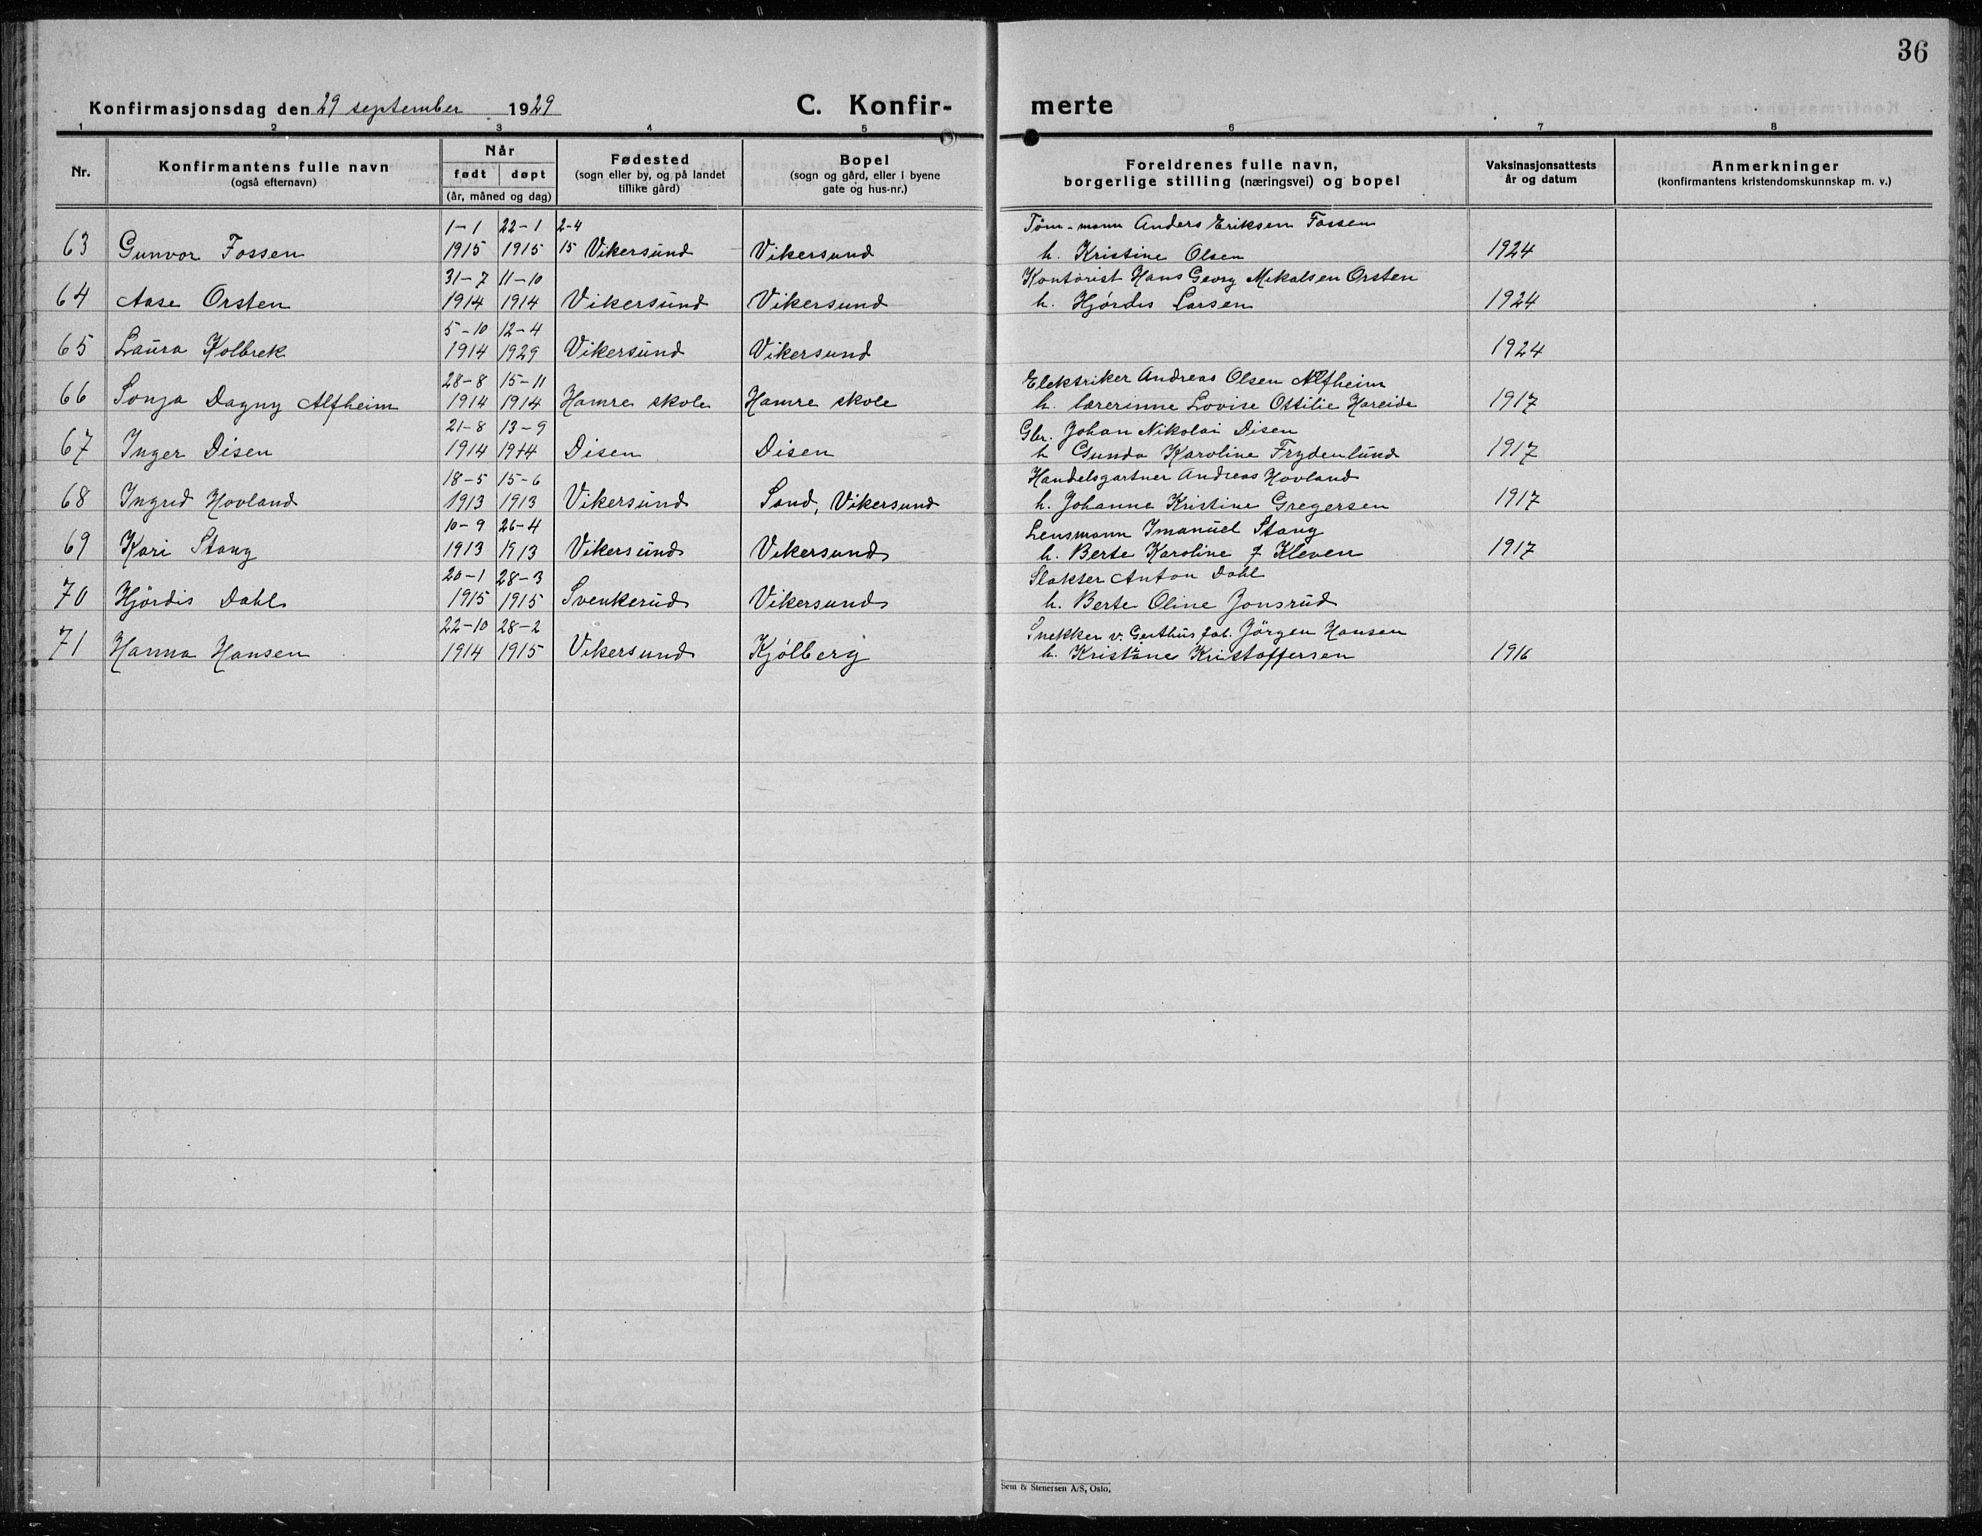 36
Konfirmasjonsdag den 29 september 1929
C. Konfir-
merte
1 2 3 4 5 6 7 8
Nr.
Konfirmantens fulle navn
(også efternavn)
Når
født døpt
(år, måned og dag)
Fødested
(sogn eller by, og på landet
tillike gård)
Bopel
(sogn og gård, eller i byene
gate og hus-nr.)
Foreldrenes fulle navn,
borgerlige stilling (næringsvei) og bopel
Vaksinasjonsattests
år og datum
Anmerkninger
(konfirmantens kristendomskunnskap m. v.)
1-1 22-1 2-4 Tøm-mann Anders Eriksen Fossen
63 Gunvor Fossen 1915 1915 15 Vikersund Vikersund h. Kristine Olsen 1924
31-7 11-10 Kontorist Hans Georg Mikalsen Orsten
64 Aase Orsten 1914 1914 Vikersund Vikersund h. Hjørdis Larsen 1924
5-10 12-4
65 Laura Kolbrek 1914 1929 Vikersund Vikersund 1924
28-8 15-11 Elektriker Andreas Olsen Alfheim
66 Sonja Dagny Alfheim 1914 1914 Hamre skole Hamre skole h. lærerinne Lovise Ottilie Hareide 1917
21-8 13-9 Gbr. Johan Nikolai Disen
67 Inger Disen 1914 1914 Disen Disen h Gunda Karoline Frydenlund 1917
18-5 15-6 Handelsgartner Andreas Hovland
68 Ingrid Hovland 1913 1913 Vikersund Sand, Vikersund h. Johanne Kristine Gregersen 1917
10-9 26-4 Lensmann Imanuel Stang
69 Kari Stang 1913 1913 Vikersund Vikersund h. Berte Karoline f Kleven 1917
20-1 28-3 Slakter Anton Dahl
70 Hjördis Dahl 1915 1915 Svenkerud Vikersund h. Berte Oline Jonsrud
22-10 28-2 Snekker v. Geithus fab. Jörgen Hansen
71 Hanna Hansen 1914 1915 Vikersund Kjølberg h. Kristiane Kristoffersen 1916
Sem & Stenersen A/S, Oslo.